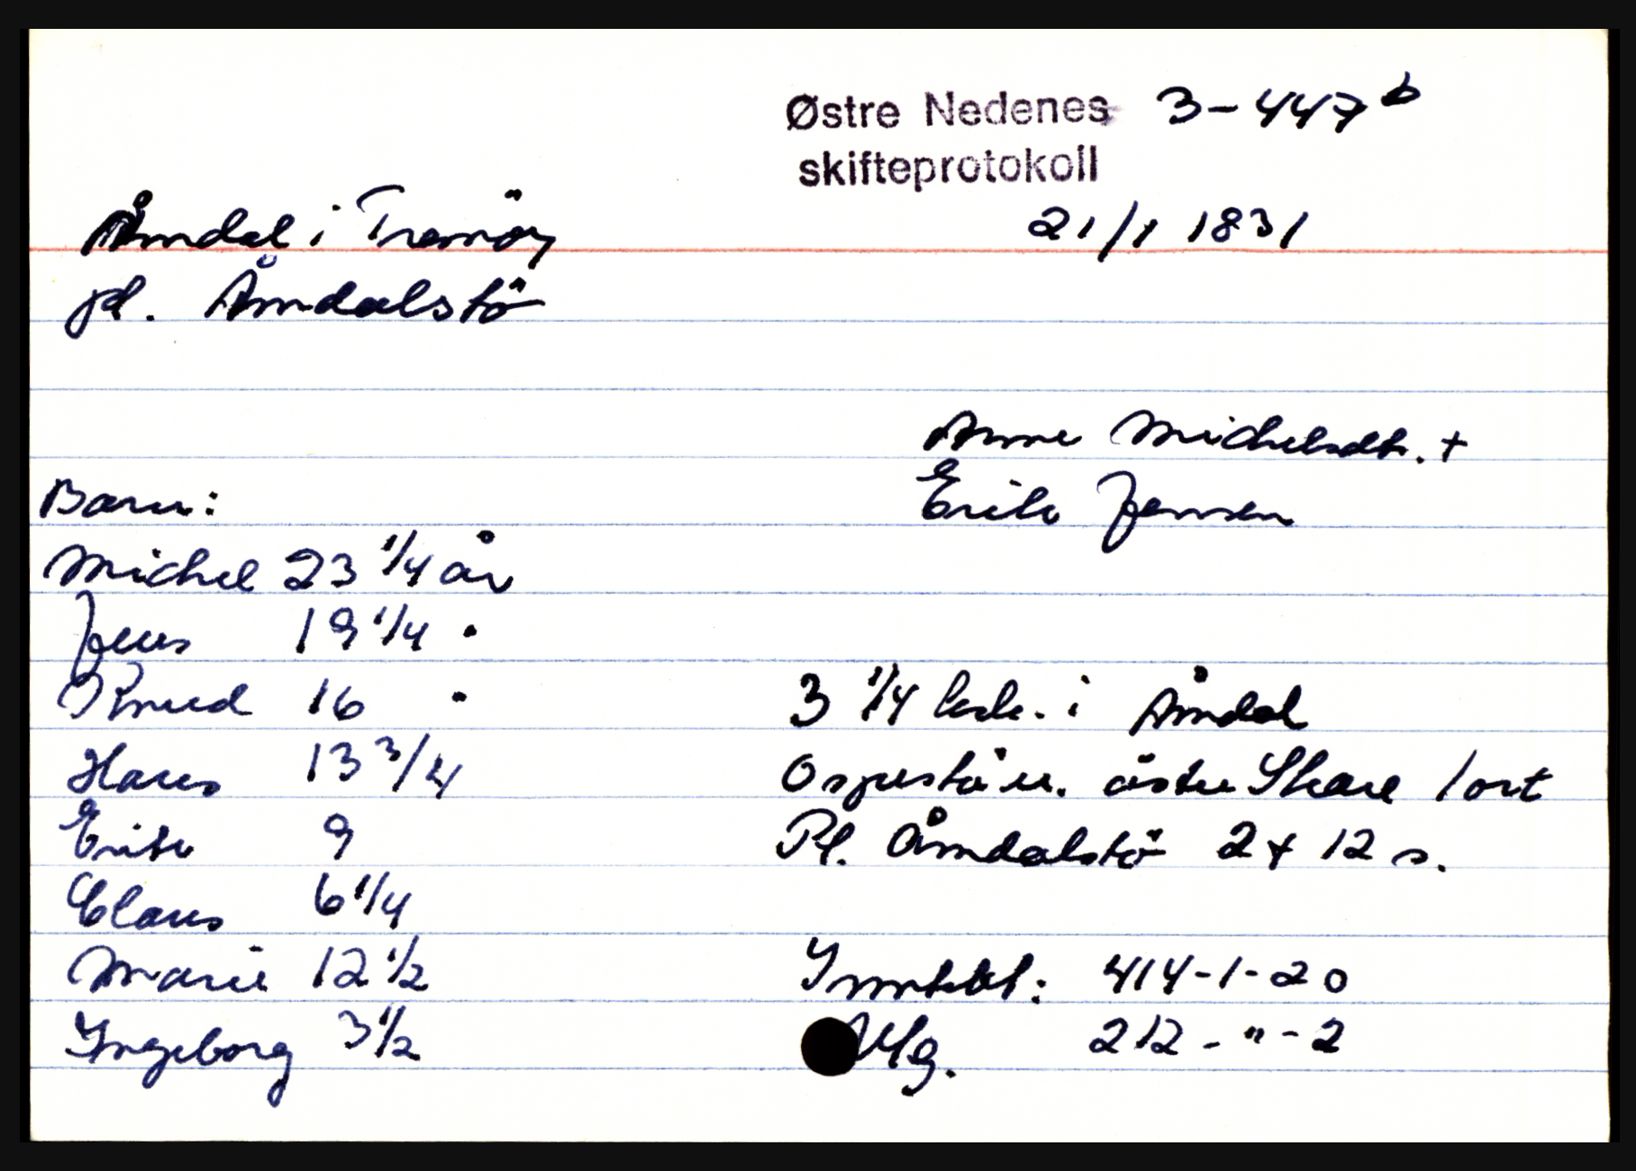 Østre Nedenes 3-447 b
skifteprotokoll
Åmdal i Tromöy 21/1 1831
pl. Åmdalstö
Anne Michelsdtr. +
Barn: Erik Jensen
Michel 23 1/4 år
Jens 19 1/4 "
Knud 16 " 3 1/4 besk. i Åmdal
Hans 13 3/4 östre Skare 1 ort
Erik 9 Pl. Åmdalstö 2 + 12 s.
Claus 6 1/4
Marie 12 1/2 414-1-20
Ingeborg 3 1/2 212-"-2